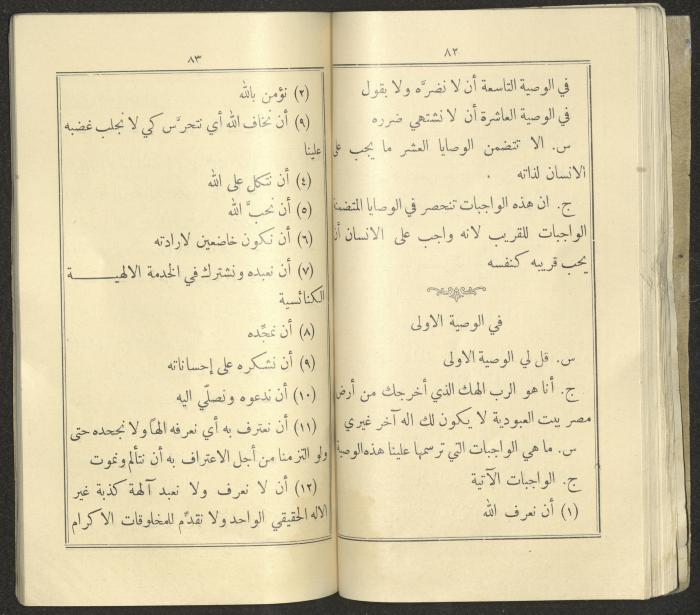 ٨٢
في الوصية التاسعة أن لا نضرَّه ولا بقول
في الوصية العاشرة أن لا نشتهي ضرره
س. الا تتضمن الوصايا العشر ما يجب على
الانسان لذاته
ج. ان هذه الواجبات تنحصر في الوصايا المتضمنة
الواجبات للقريب لانه واجب على الانسان أن
يحب قريبه كنفسه
في الوصية الاولى
س. قل لي الوصية الاولى
ج. أنا هو الرب الهك الذي أخرجك من أرض
مصر بيت العبودية لا يكون لك اله آخر غيري
س. ما هي الواجبات التي ترسمها علينا هذه الوصية
ج. الواجبات الآتية
(١) أن نعرف الله
٨٣
(٢) نؤمن بالله
(٩) أن نخاف الله أي نتحرَّس كي لا نجلب غضبه
علينا
(٤) أن نتكل على الله
(٥) أن نحبَّ الله
(٦) أن نكون خاضعين لارادته
(٧) أن نعبده ونشترك في الخدمة الالهيـــة
الكنائسية
(٨) أن نمجّده
(٩) أن نشكره على إحساناته
(١٠) أن ندعوه ونصلّي اليه
(١١) أن نعترف به أي نعرفه الهًا ولا نجحده حتى
ولو التزمنا من أجل الاعتراف به أن نتألم ونموت
(١٢) أن لا نعرف ولا نعبد آلهة كذبة غير
الاله الحقيقي الواحد ولا نقدّم للمخلوقات الاكرام